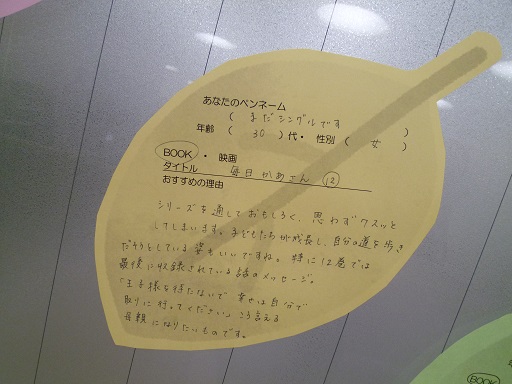 あなたのペンネーム
( まだシングルです )
年齢 ( 30 ) 代・性別 ( 女 )
BOOK ・ 映画
タイトル 毎日かあさん ⑫
おすすめの理由
シリーズを通しておもしろく、思わずクスッと
してしまいます。子どもたちが成長し、自分の道を歩き
だそうとしている姿もいいですね。特に12巻では
最後に収録されている話のメッセージ。
「王子様を待たないで 幸せは自分で
取りに行ってください」こう言える
母親になりたいものです。
BOOK